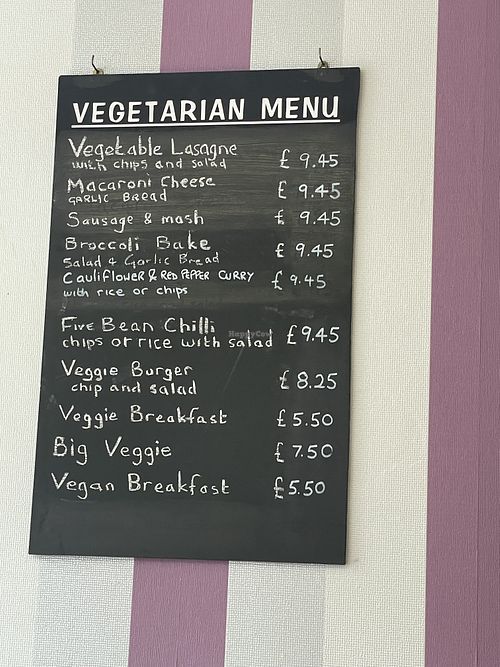 VEGETARIAN MENU
Vegetable Lasagne
with chips and salad £ 9.45
Macaroni Cheese
GARLIC BREAD £ 9.45
Sausage & mash £ 9.45
Broccoli Bake £ 9.45
Salad & Garlic Bread
Cauliflower & RED PEPPER CURRY £ 9.45
with rice or chips
Five Bean Chilli
chips or rice with salad £9.45
Veggie Burger £ 8.25
chip and salad
Veggie Breakfast £5.50
Big Veggie £ 7.50
Vegan Breakfast £5.50
HappyCow